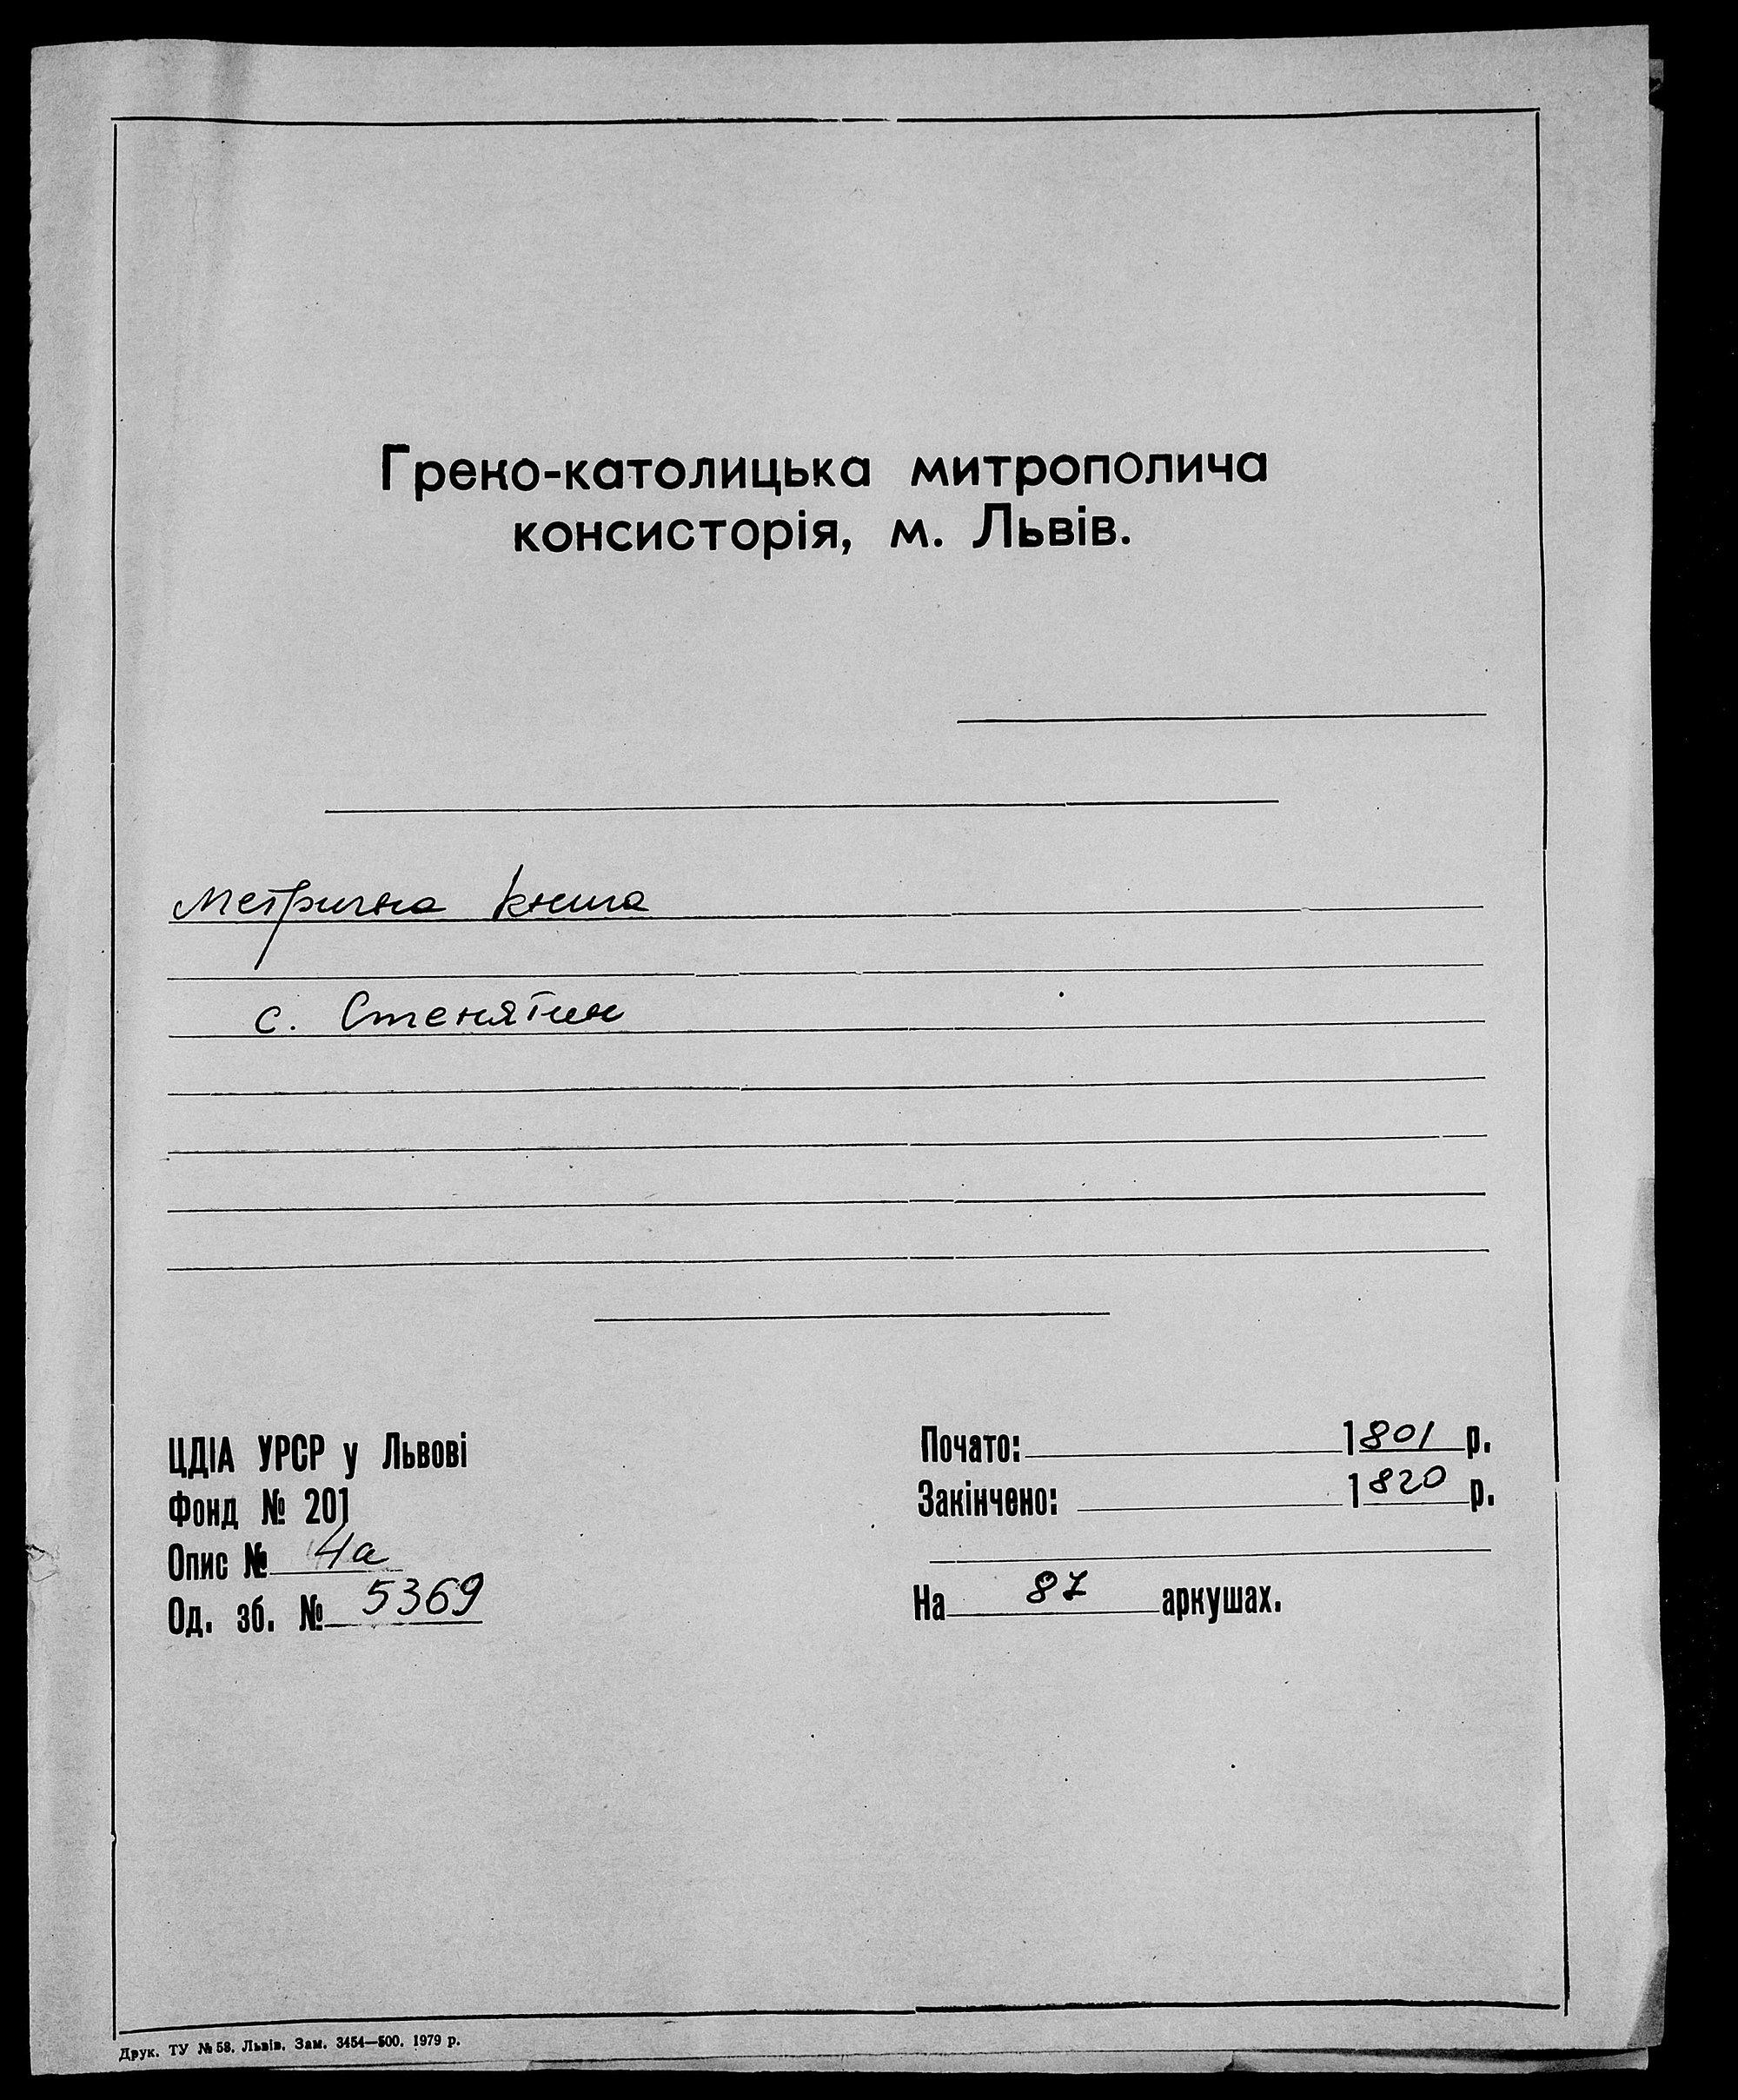 Греко-католицька митрополича
консисторія, м. Львів.
Метрична книга
с. Стенятин
ЦДІА УРСР у Львові
Фонд № 201
Опис № 4а
Од. зб. № 5369
Почато: 1801 р.
Закінчено: 1820 р.
На 87 аркушах.
Друк. ТУ № 58. Львів. Зам. 3454—500. 1979 р.